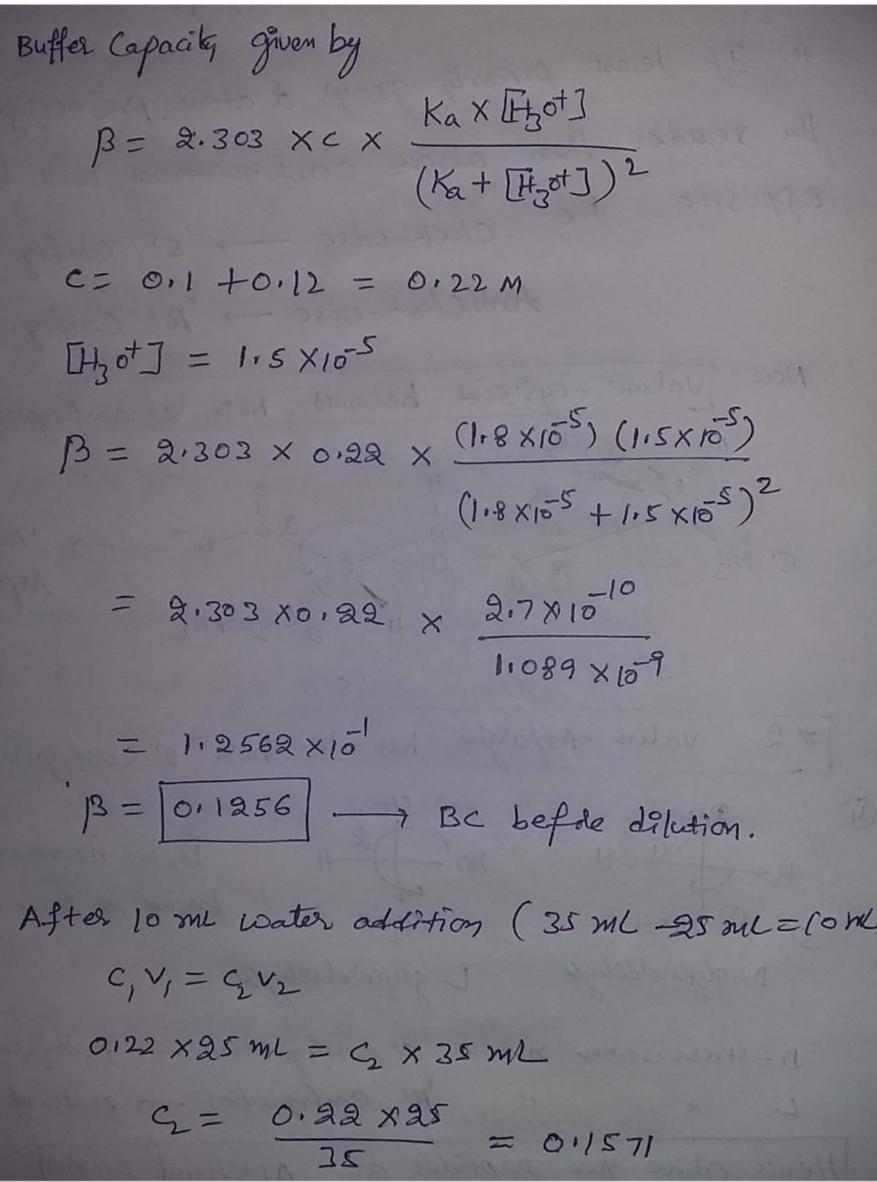 Buffer Capacity given by
β = 2.303 × C × Ka × [H3O+] / (Ka + [H3O+])²
C = 0.1 + 0.12 = 0.22 M
[H3O+] = 1.5 × 10⁻⁵
β = 2.303 × 0.22 × (1.8 × 10⁻⁵) (1.5 × 10⁻⁵) / (1.8 × 10⁻⁵ + 1.5 × 10⁻⁵)²
= 2.303 × 0.22 × 2.7 × 10⁻¹⁰ / 1.089 × 10⁻⁹
= 1.2562 × 10⁻¹
β = 0.1256 → BC before dilution.
After 10 mL water addition ( 35 mL - 25 mL = 10 mL
C₁V₁ = C₂V₂
0.22 × 25 mL = C₂ × 35 mL
C₂ = 0.22 × 25 / 35 = 0.1571